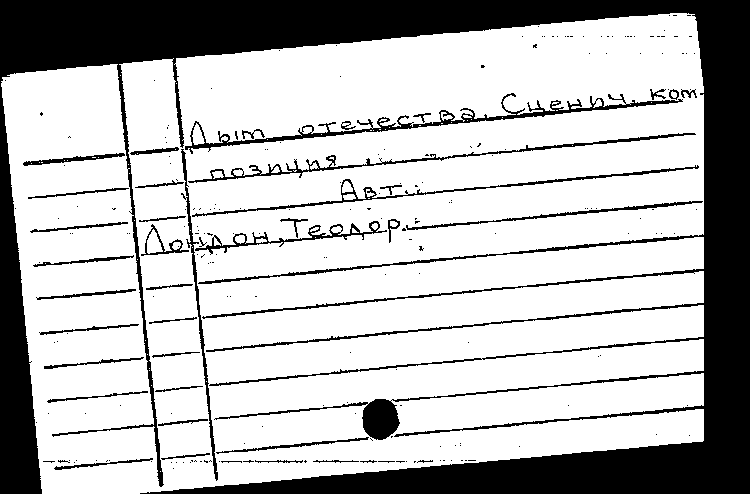 Дым отечества. Сценич. ком-
позиция.
Авт.:
Лондон, Теодор.